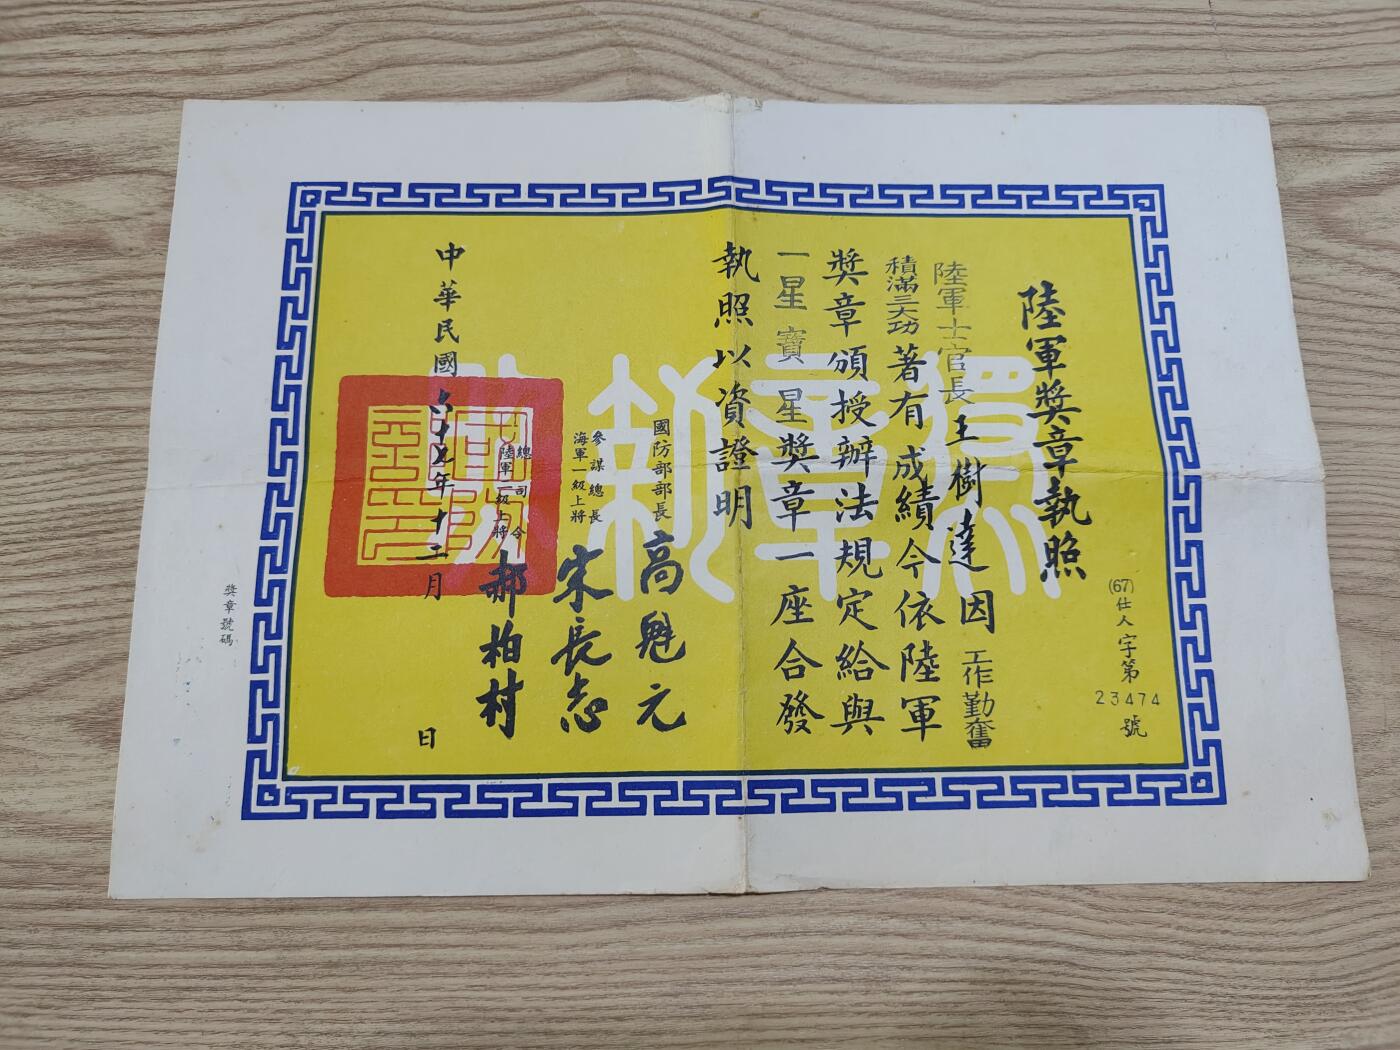 陸軍獎章執照
(67)仕人字第23474號
陸軍士官長王樹達因工作勤奮
積滿三大功著有成績今依陸軍
獎章頒授辦法規定給與
一星寶星獎章一座合發
執照以資證明
國防部部長高魁元
參謀總長
海軍一級上將
宋長志
總司令
陸軍一級上將
郝柏村
中華民國六十七年十二月 日
獎章號碼
獎章執照